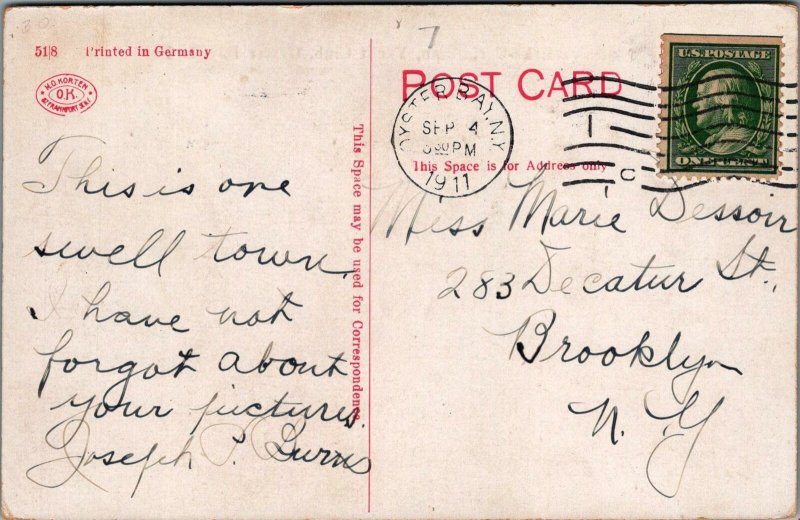 518 Printed in Germany
H.O. KORTEN
O.K.
This is one
swell town.
I have not
forgot about
your pictures.
Joseph P. Burns
This Space may be used for Correspondence
7
POST CARD
This Space is for Address only
OYSTER BAY, N.Y.
SEP 4
PM
1911
1
C
U.S. POSTAGE
ONE CENT
Miss Marie Dessoir
283 Decatur St.,
Brooklyn
N.Y